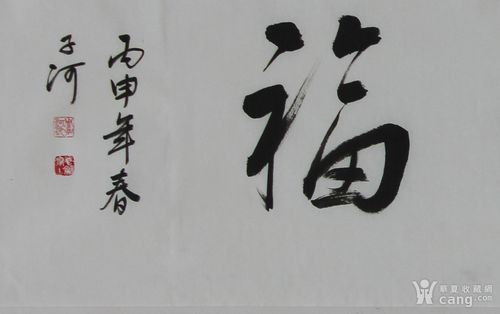 福
丙申年春
子河
華夏收藏網
cang.com